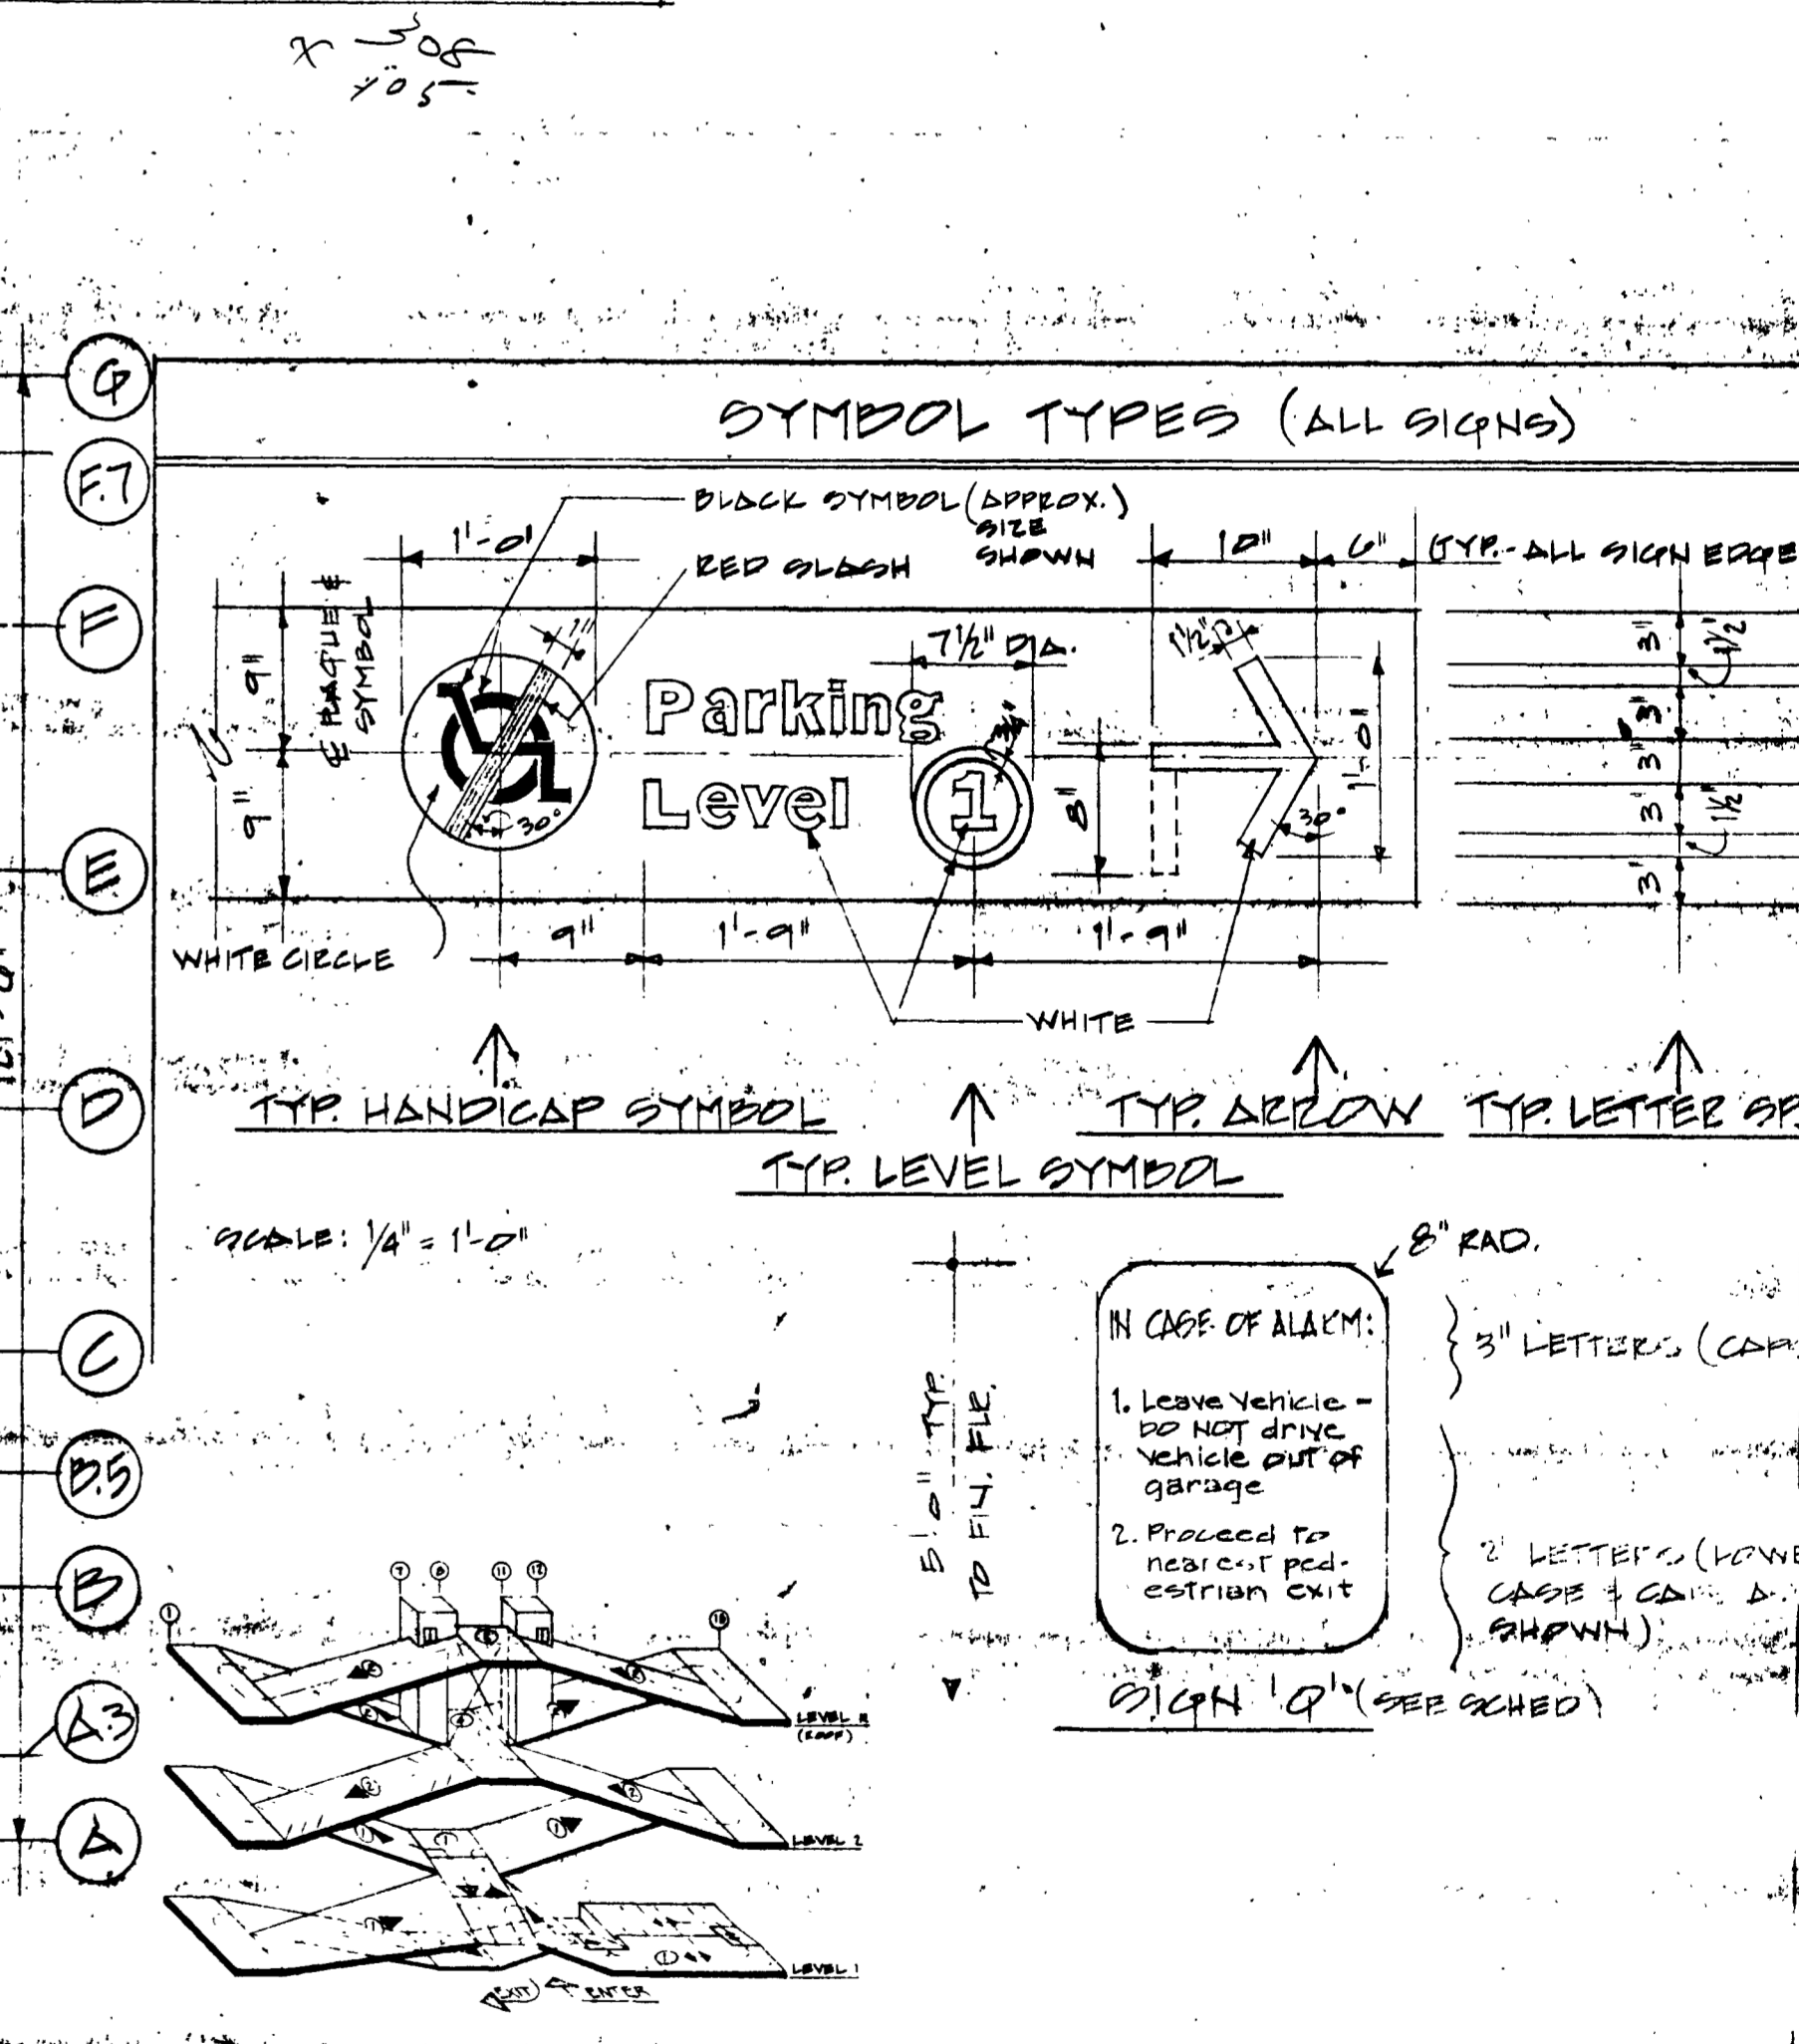 x 308
G
F.7
F
E
D
C
B.5
B
A.3
A
SYMBOL TYPES (ALL SIGNS)
BLACK SYMBOL (APPROX.)
SIZE
SHOWN
RED SLASH
1'-0"
10"
6"
(TYP.-ALL SIGN EDGE
℄ PLAQUE &
SYMBOL
9"
9"
1"
7½" DIA.
1½"
Parking
Level
1
30°
8"
1'-0"
30°
3"
1½"
3"
3"
3"
1½"
3"
WHITE CIRCLE
9"
1'-9"
1'-9"
WHITE
TYP. HANDICAP SYMBOL
TYP. ARROW
TYP. LETTER SP
TYP. LEVEL SYMBOL
SCALE: 1/4" = 1'-0"
8" RAD.
IN CASE OF ALARM:
1. Leave vehicle -
DO NOT drive
vehicle out of
garage
2. Proceed to
nearest ped-
estrian exit
3" LETTERS (CAPS
2" LETTERS (LOWE
CASE & CAPS A
SHOWN)
5'-0" TYP.
TO FIN. FLR.
SIGN 'Q' (SEE SCHED)
1
7
8
11
12
18
LEVEL R
(ROOF)
2
2
1
1
1
LEVEL 2
1
1
LEVEL 1
EXIT
ENTER